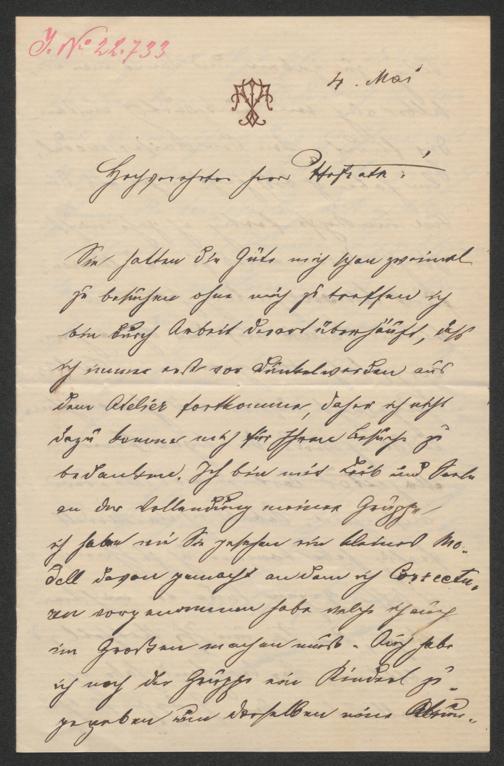 J. No 22.733
4. Mai
Hochverehrter Herr Hofrath!
Sie hatten die Güte mich schon zweimal
zu besuchen ohne mich zu treffen ich
bin durch Arbeit derart überhäuft, daß
ich immer erst vor Dunkelwerden aus
dem Atelier fortkomme, daher ich nicht
dazu komme mich für Ihren Besuch zu
bedanken. Ich bin mit Leib und Seele
an der Vollendung meiner Gruppe,
ich habe wie Sie gesehen ein kleines Mo-
dell davon gemacht an dem ich Correctu-
ren vorgenommen habe welche ich auch
im Großen machen muß. Auch habe
ich noch der Gruppe ein Kinderl zu-
gegeben um derselben eine